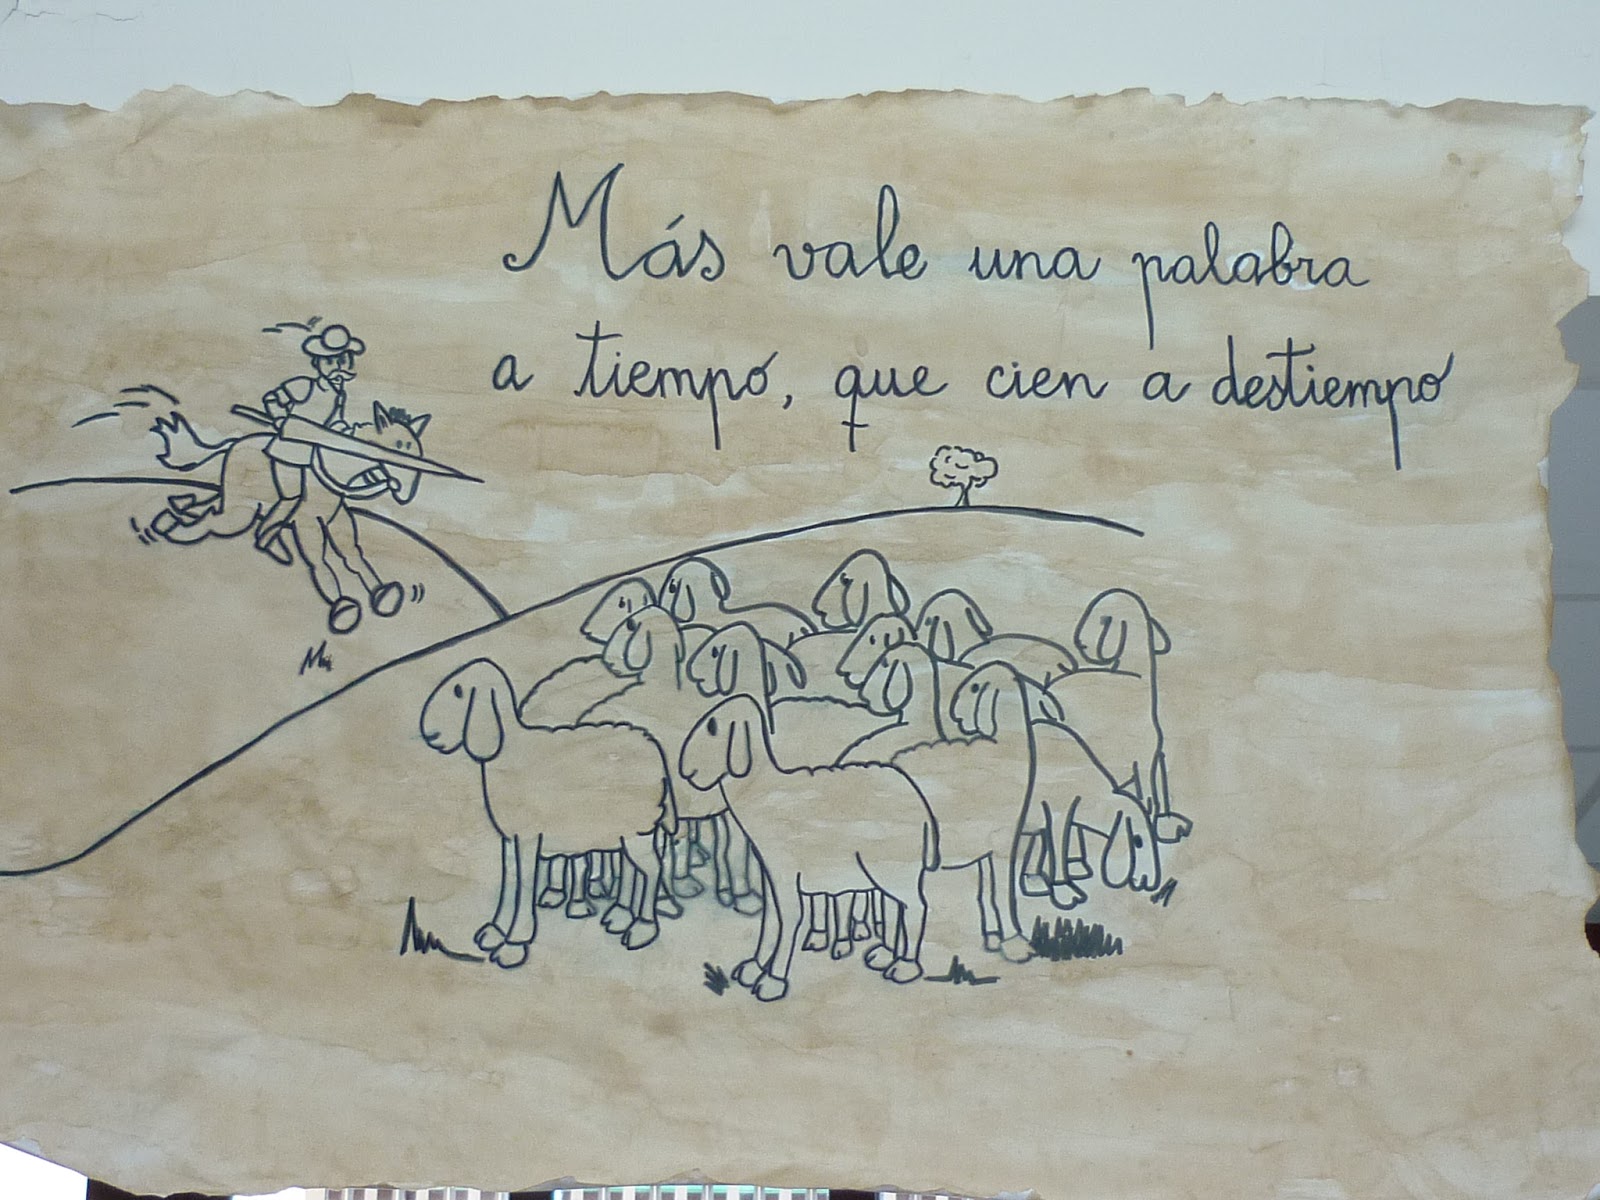 Más vale una palabra
a tiempo, que cien a destiempo